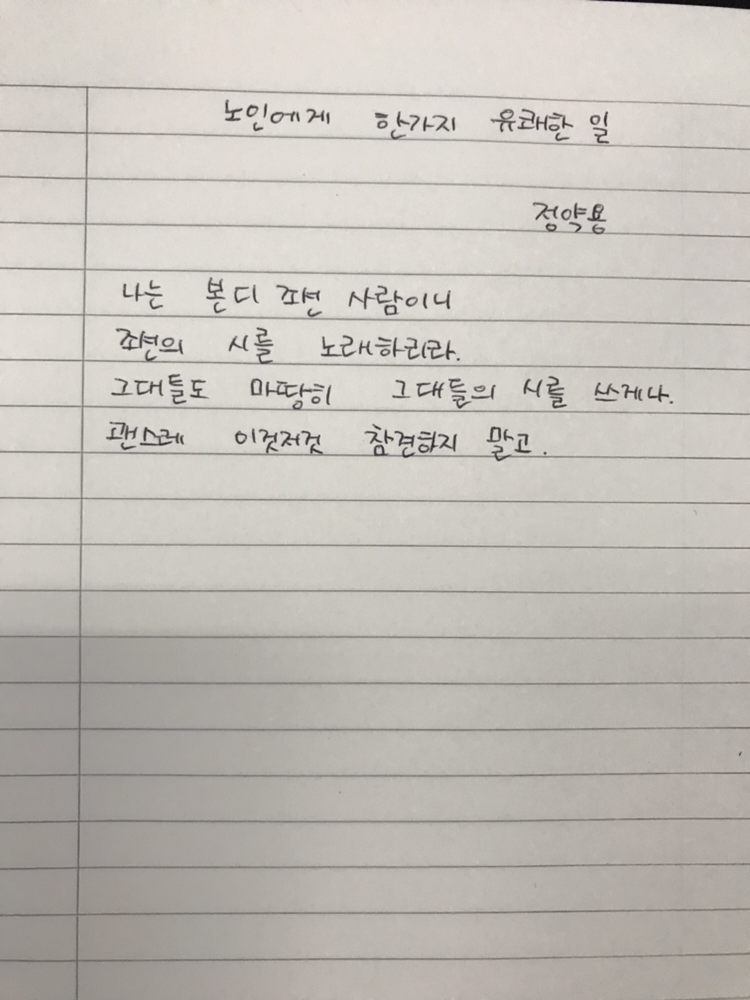 노인에게 한가지 유쾌한 일
정약용
나는 본디 조선 사람이니
조선의 시를 노래하리라.
그대들도 마땅히 그대들의 시를 쓰게나.
괜스레 이것저것 참견하지 말고.